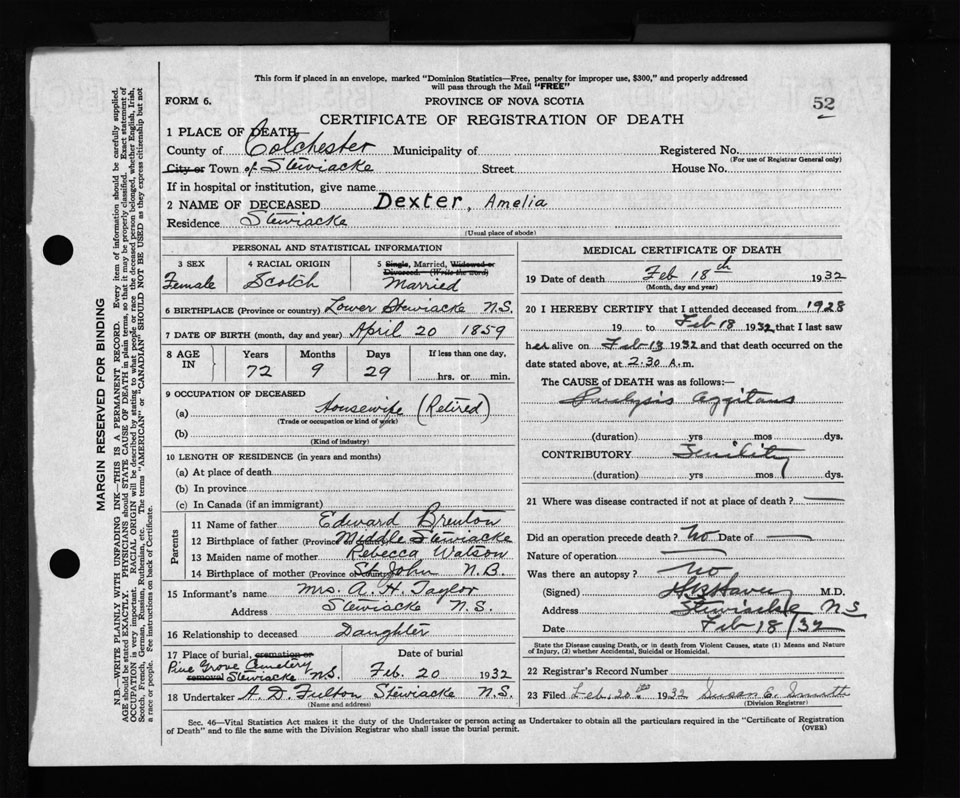 This form if placed in an envelope, marked "Dominion Statistics—Free, penalty for improper use, $300," and properly addressed
will pass through the Mail "FREE"
FORM 6. PROVINCE OF NOVA SCOTIA 52
CERTIFICATE OF REGISTRATION OF DEATH
1 PLACE OF DEATH
County of Colchester Municipality of Registered No.
(For use of Registrar General only)
City or Town of Stewiacke Street House No.
If in hospital or institution, give name
2 NAME OF DECEASED Dexter, Amelia
Residence Stewiacke
(Usual place of abode)
PERSONAL AND STATISTICAL INFORMATION
3 SEX 4 RACIAL ORIGIN 5 Single, Married, Widowed or
Divorced. (Write the word)
Female Scotch Married
6 BIRTHPLACE (Province or country) Lower Stewiacke N.S.
7 DATE OF BIRTH (month, day and year) April 20 1859
8 AGE IN Years Months Days If less than one day,
72 9 29 hrs. or min.
9 OCCUPATION OF DECEASED
(a) Housewife (Retired)
(Trade or occupation or kind of work)
(b)
(Kind of industry)
10 LENGTH OF RESIDENCE (in years and months)
(a) At place of death
(b) In province
(c) In Canada (if an immigrant)
Parents
11 Name of father Edward Brenton
12 Birthplace of father (Province or country) Middle Stewiacke
13 Maiden name of mother Rebecca Watson
14 Birthplace of mother (Province or country) St John N.B.
15 Informant's name Mrs. A. H. Taylor
Address Stewiacke N.S.
16 Relationship to deceased Daughter
17 Place of burial, cremation or removal Date of burial
Pine Grove Cemetery
Stewiacke N.S. Feb. 20 1932
18 Undertaker A. D. Fulton Stewiacke N.S.
(Name and address)
MEDICAL CERTIFICATE OF DEATH
19 Date of death Feb 18th 1932
(Month, day and year)
20 I HEREBY CERTIFY that I attended deceased from 1928
19 to Feb 18 1932 that I last saw
her alive on Feb 18 1932 and that death occurred on the
date stated above, at 2:30 A.m.
The CAUSE of DEATH was as follows:—
Paralysis aggitans
(duration) yrs mos dys.
CONTRIBUTORY Senility
(duration) yrs mos dys.
21 Where was disease contracted if not at place of death? —
Did an operation precede death? No Date of —
Nature of operation —
Was there an autopsy? No
(Signed) M.D.
Address Stewiacke N.S
Date Feb 18/32
State the Disease causing Death, or in death from Violent Causes, state (1) Means and Nature
of Injury, (2) whether Accidental, Suicidal or Homicidal.
22 Registrar's Record Number
23 Filed Feb. 20th 1932 Susan C. Smith
(Division Registrar)
Sec. 46—Vital Statistics Act makes it the duty of the Undertaker or person acting as Undertaker to obtain all the particulars required in the "Certificate of Registration
of Death" and to file the same with the Division Registrar who shall issue the burial permit. (OVER)
MARGIN RESERVED FOR BINDING
N.B.—WRITE PLAINLY WITH UNFADING INK—THIS IS A PERMANENT RECORD. Every item of information should be carefully supplied.
AGE should be stated EXACTLY. PHYSICIANS should STATE CAUSE OF DEATH in plain terms, so that it may be properly classified. Exact statement of
OCCUPATION is very important. RACIAL ORIGIN will be described by stating to what people or race the deceased person belonged, whether English, Irish,
Scotch, French, German, Russian, Ruthenian, etc. The terms "AMERICAN" or "CANADIAN" SHOULD NOT BE USED as they express citizenship but not
a race or people. See instructions on back of Certificate.